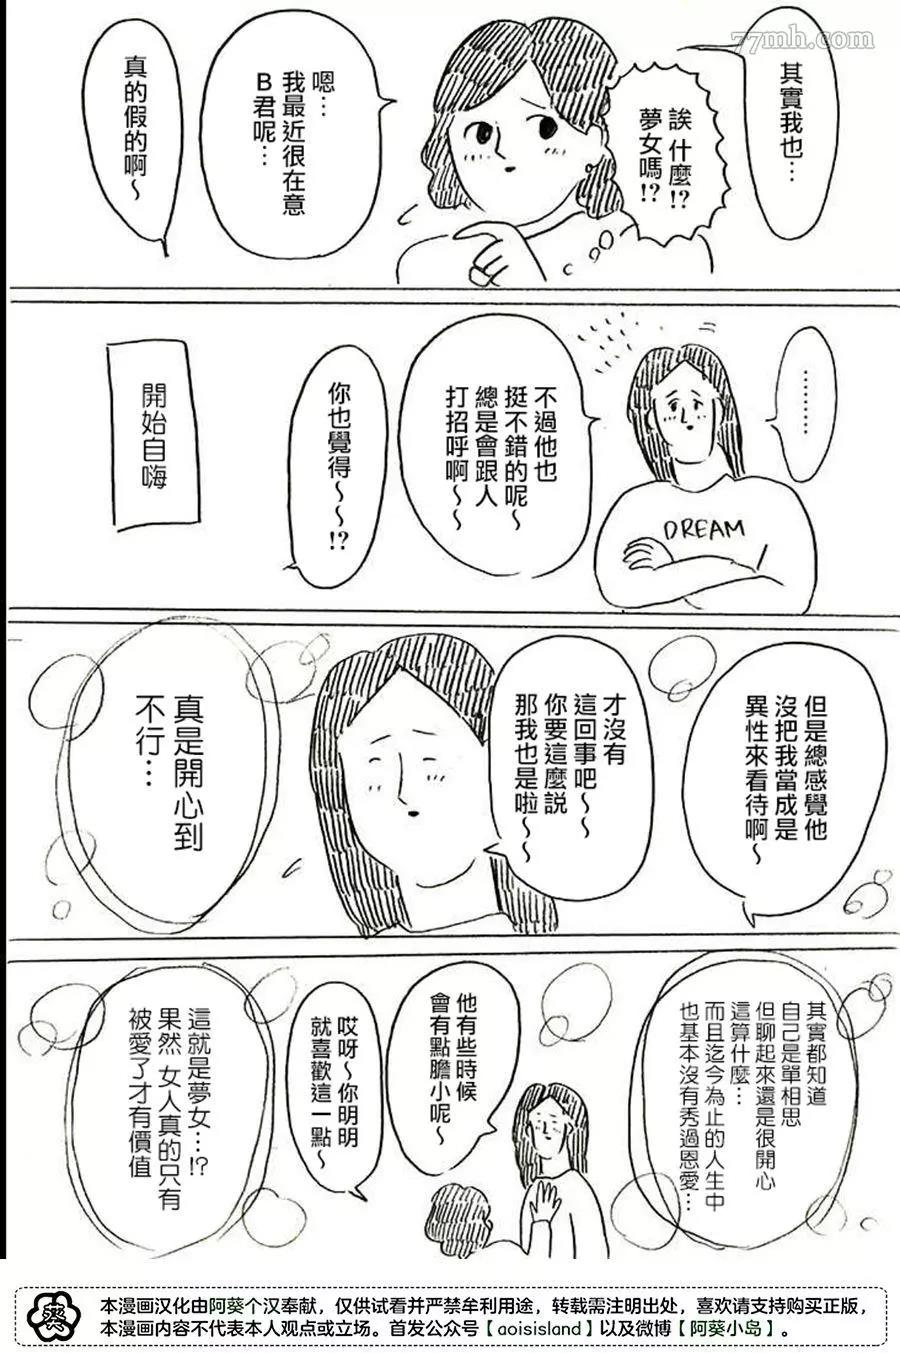 77mh.com
其實我也…
誒 什麼!?
夢女嗎!?
嗯…
我最近很在意
B君呢…
真的假的啊～
………
不過他也
挺不錯的呢～
總是會跟人
打招呼啊～～
你也覺得～～!?
DREAM
開始自嗨
但是總感覺他
沒把我當成是
異性來看待啊～
才沒有
這回事吧～
你要這麼說
那我也是啦～
真是開心到
不行…
其實都知道
自己是單相思
但聊起來還是很開心
這算什麼…
而且迄今為止的人生中
也基本沒有秀過恩愛…
他有些時候
會有點膽小呢～
哎呀～你明明
就喜歡這一點～
這就是夢女…!?
果然 女人真的只有
被愛了才有價值
葵
本漫画汉化由阿葵个汉奉献，仅供试看并严禁牟利用途，转载需注明出处，喜欢请支持购买正版，
本漫画内容不代表本人观点或立场。首发公众号【aoisisland】以及微博【阿葵小岛】。